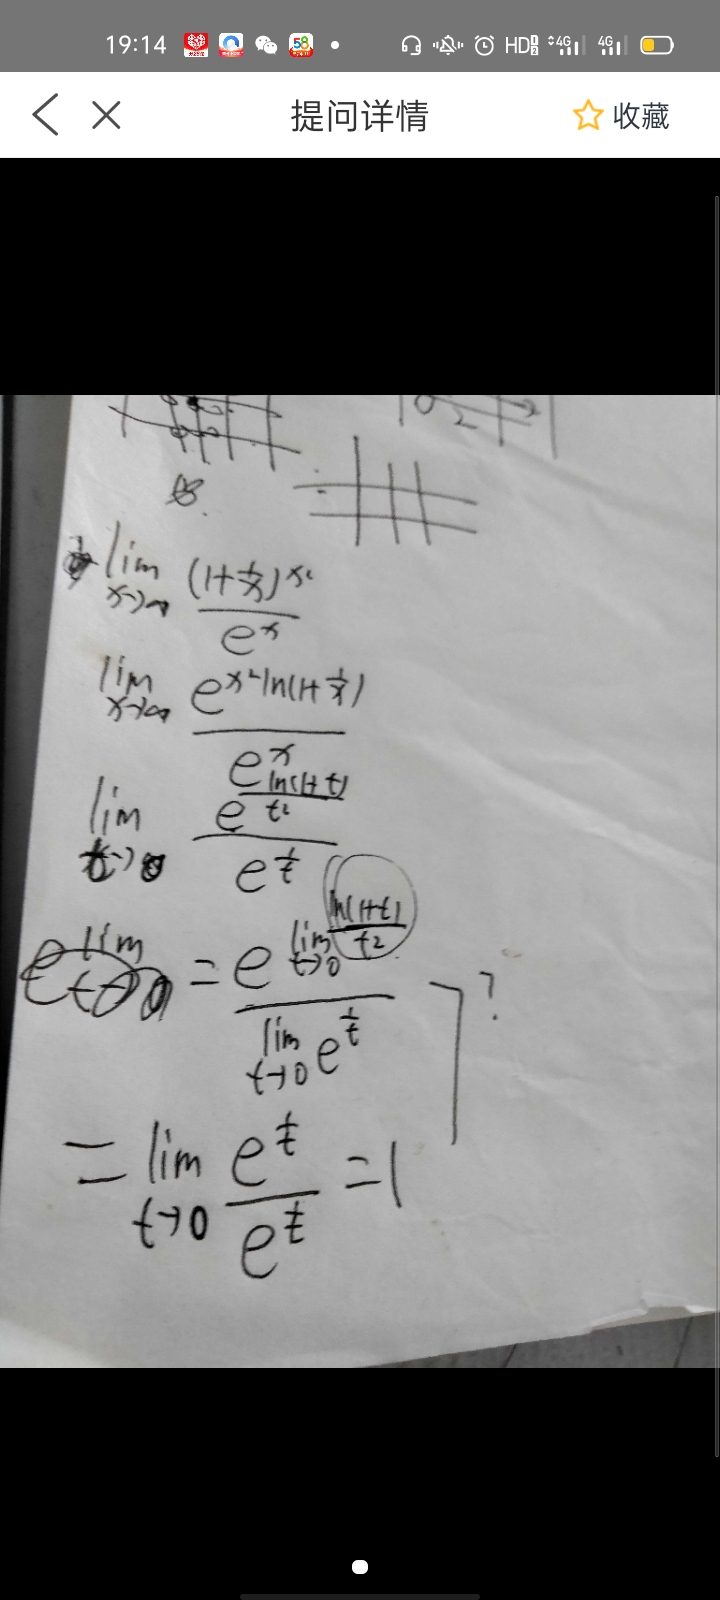 19:14 58 HD 1 2 4G 4G
提问详情 收藏
2
lim x→∞ (1+1/x)^x² / e^x
lim x→∞ e^(x² ln(1+1/x)) / e^x
lim t→0 e^(ln(1+t)/t²) / e^(1/t)
= e^(lim t→0 ln(1+t)/t²) / lim t→0 e^(1/t) ?
= lim t→0 e^(1/t) / e^(1/t) = 1